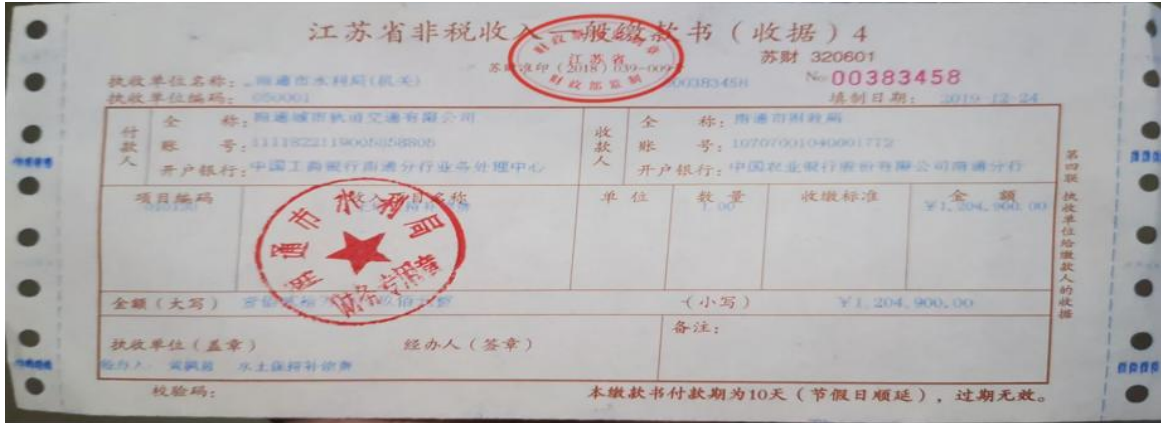 江苏省非税收入一般缴款书（收据）4
苏财 320601
苏财准印（2018）039-009
00383458
№ 00383458
执收单位名称：南通市水利局(机关)
执收单位编码：050001
填制日期：2019-12-24
付款人
全 称：南通城市轨道交通有限公司
账 号：1111822119005058805
开户银行：中国工商银行南通分行业务处理中心
收款人
全 称：南通市财政局
账 号：10707001040001772
开户银行：中国农业银行股份有限公司南通分行
项目编码 收入项目名称 单位 数量 收缴标准 金额
1.00 ￥1,204,900.00
金额（大写） （小写） ￥1,204,900.00
执收单位（盖章） 经办人（签章） 备注：
水土保持补偿费
校验码： 本缴款书付款期为10天（节假日顺延），过期无效。
第四联 执收单位给缴款人的收据
江苏省
财政部监制
南通市水利局
财务专用章